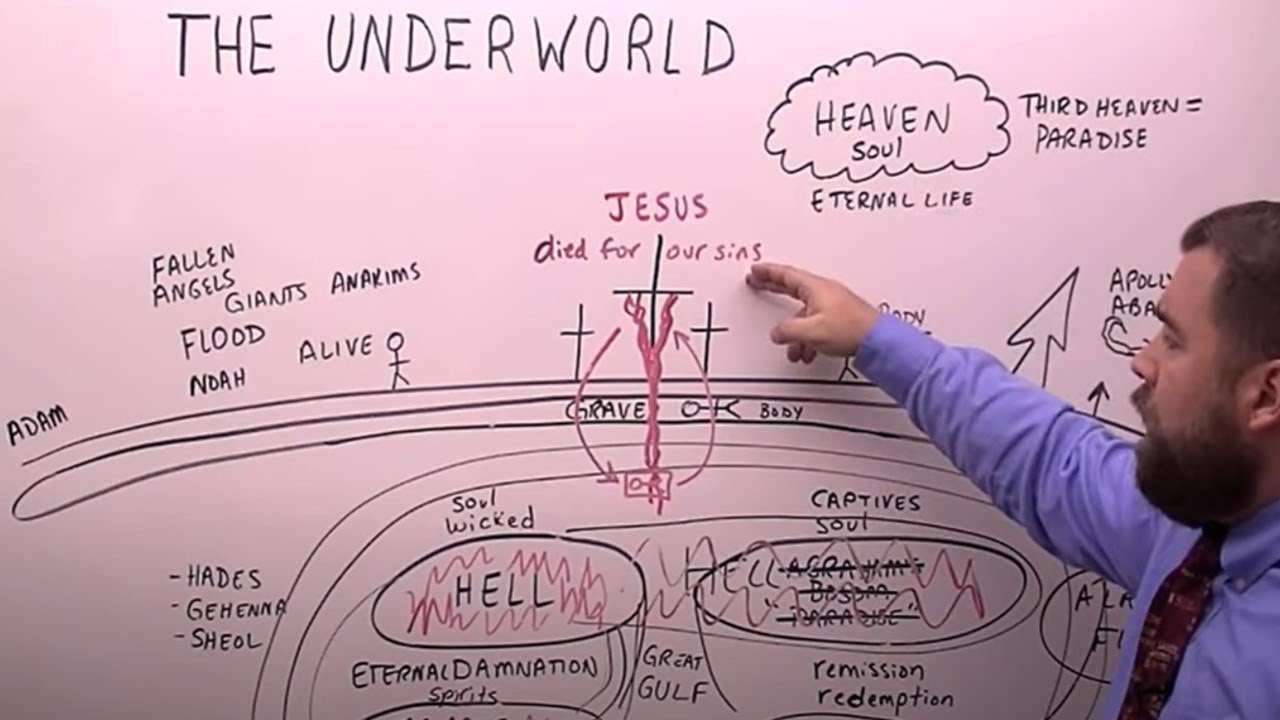 THE UNDERWORLD
HEAVEN
SOUL
THIRD HEAVEN =
PARADISE
ETERNAL LIFE
JESUS
died for our sins
FALLEN
ANGELS
GIANTS ANAKIMS
FLOOD
NOAH
ALIVE
ADAM
BODY
APOLLY
ABA
GRAVE
BODY
SOUL
wicked
CAPTIVES
SOUL
- HADES
- GEHENNA
- SHEOL
HELL
HELL ABRAHAM'S
BOSOM
"PARADISE"
ETERNAL DAMNATION
Spirits
GREAT
GULF
remission
redemption